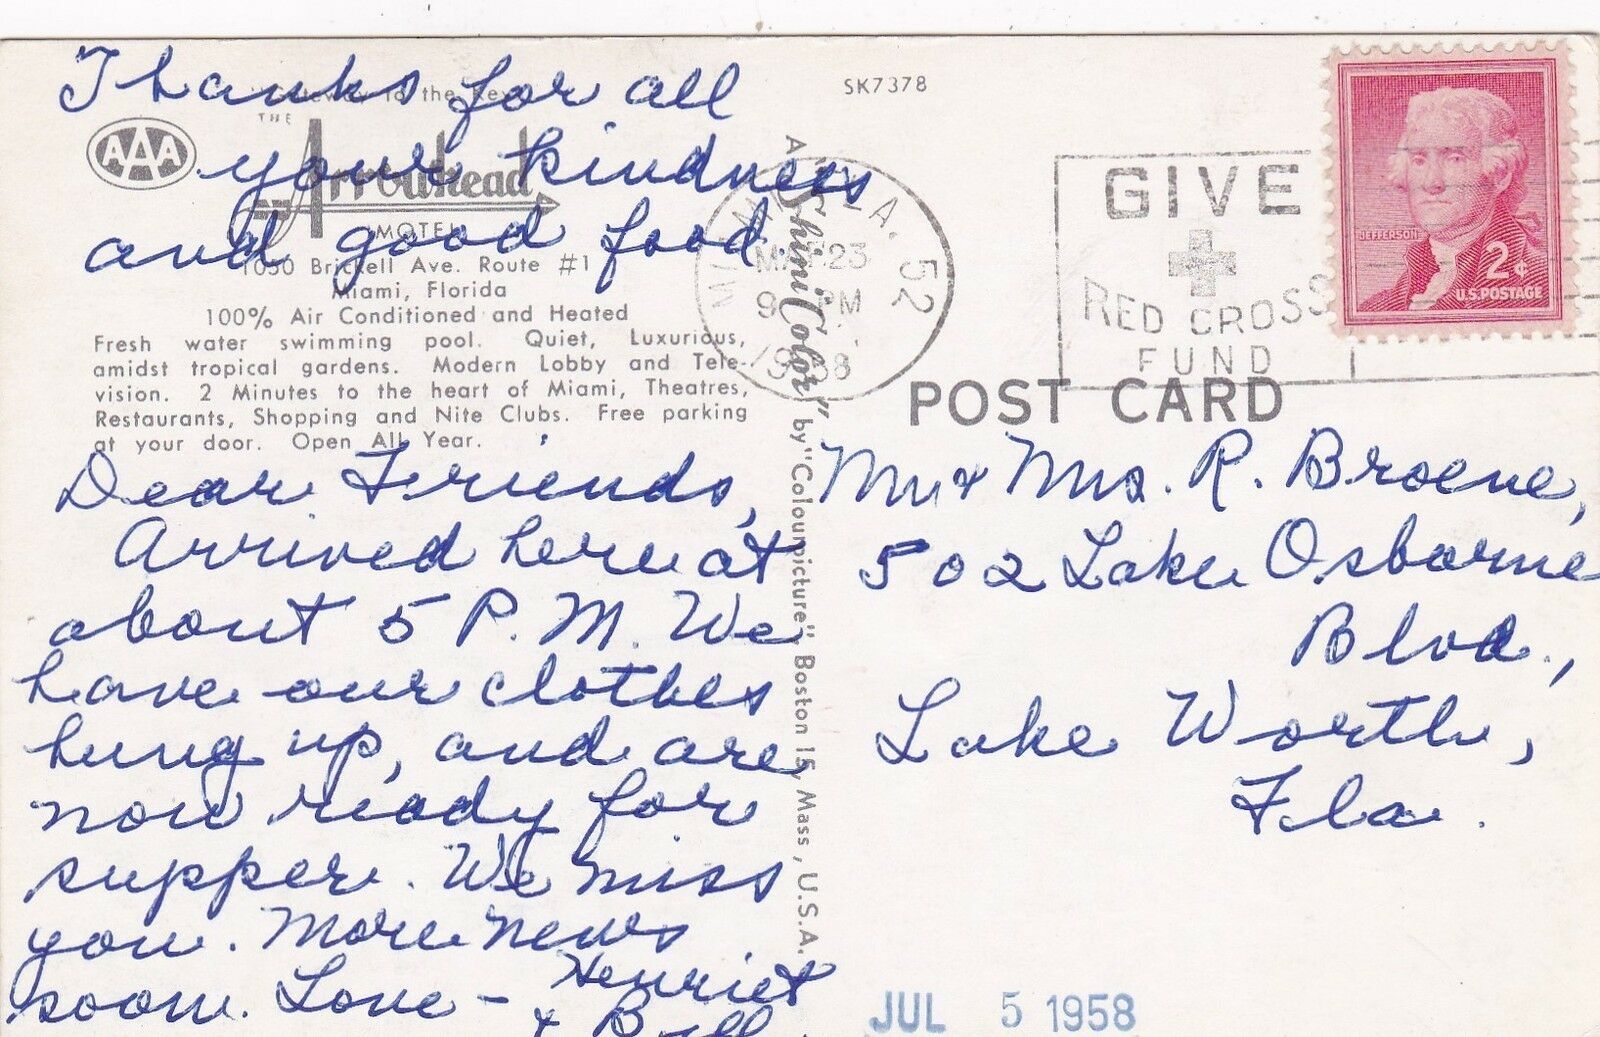 Thanks for all
your kindness
and good food
Gateway to the Keys
THE
AAA
Arrowhead
MOTEL
1050 Brickell Ave. Route #1
Miami, Florida
100% Air Conditioned and Heated
Fresh water swimming pool. Quiet, Luxurious,
amidst tropical gardens. Modern Lobby and Tele-
vision. 2 Minutes to the heart of Miami, Theatres,
Restaurants, Shopping and Nite Clubs. Free parking
at your door. Open All Year.
Dear Friends,
Arrived here at
about 5 P.M. We
have our clothes
hung up, and are
now ready for
supper. We miss
you. More news
soon. Love - Henriet
& Bill
A "ShiniColor" by "Colourpicture" Boston 15, Mass., U.S.A.
SK7378
MIAMI, FLA. 52
23
9 PM
1958
GIVE
RED CROSS
FUND
JEFFERSON
2¢
U.S. POSTAGE
POST CARD
Mr & Mrs. R. Broene,
502 Lake Osborne
Blvd.,
Lake Worth,
Fla.
JUL 5 1958